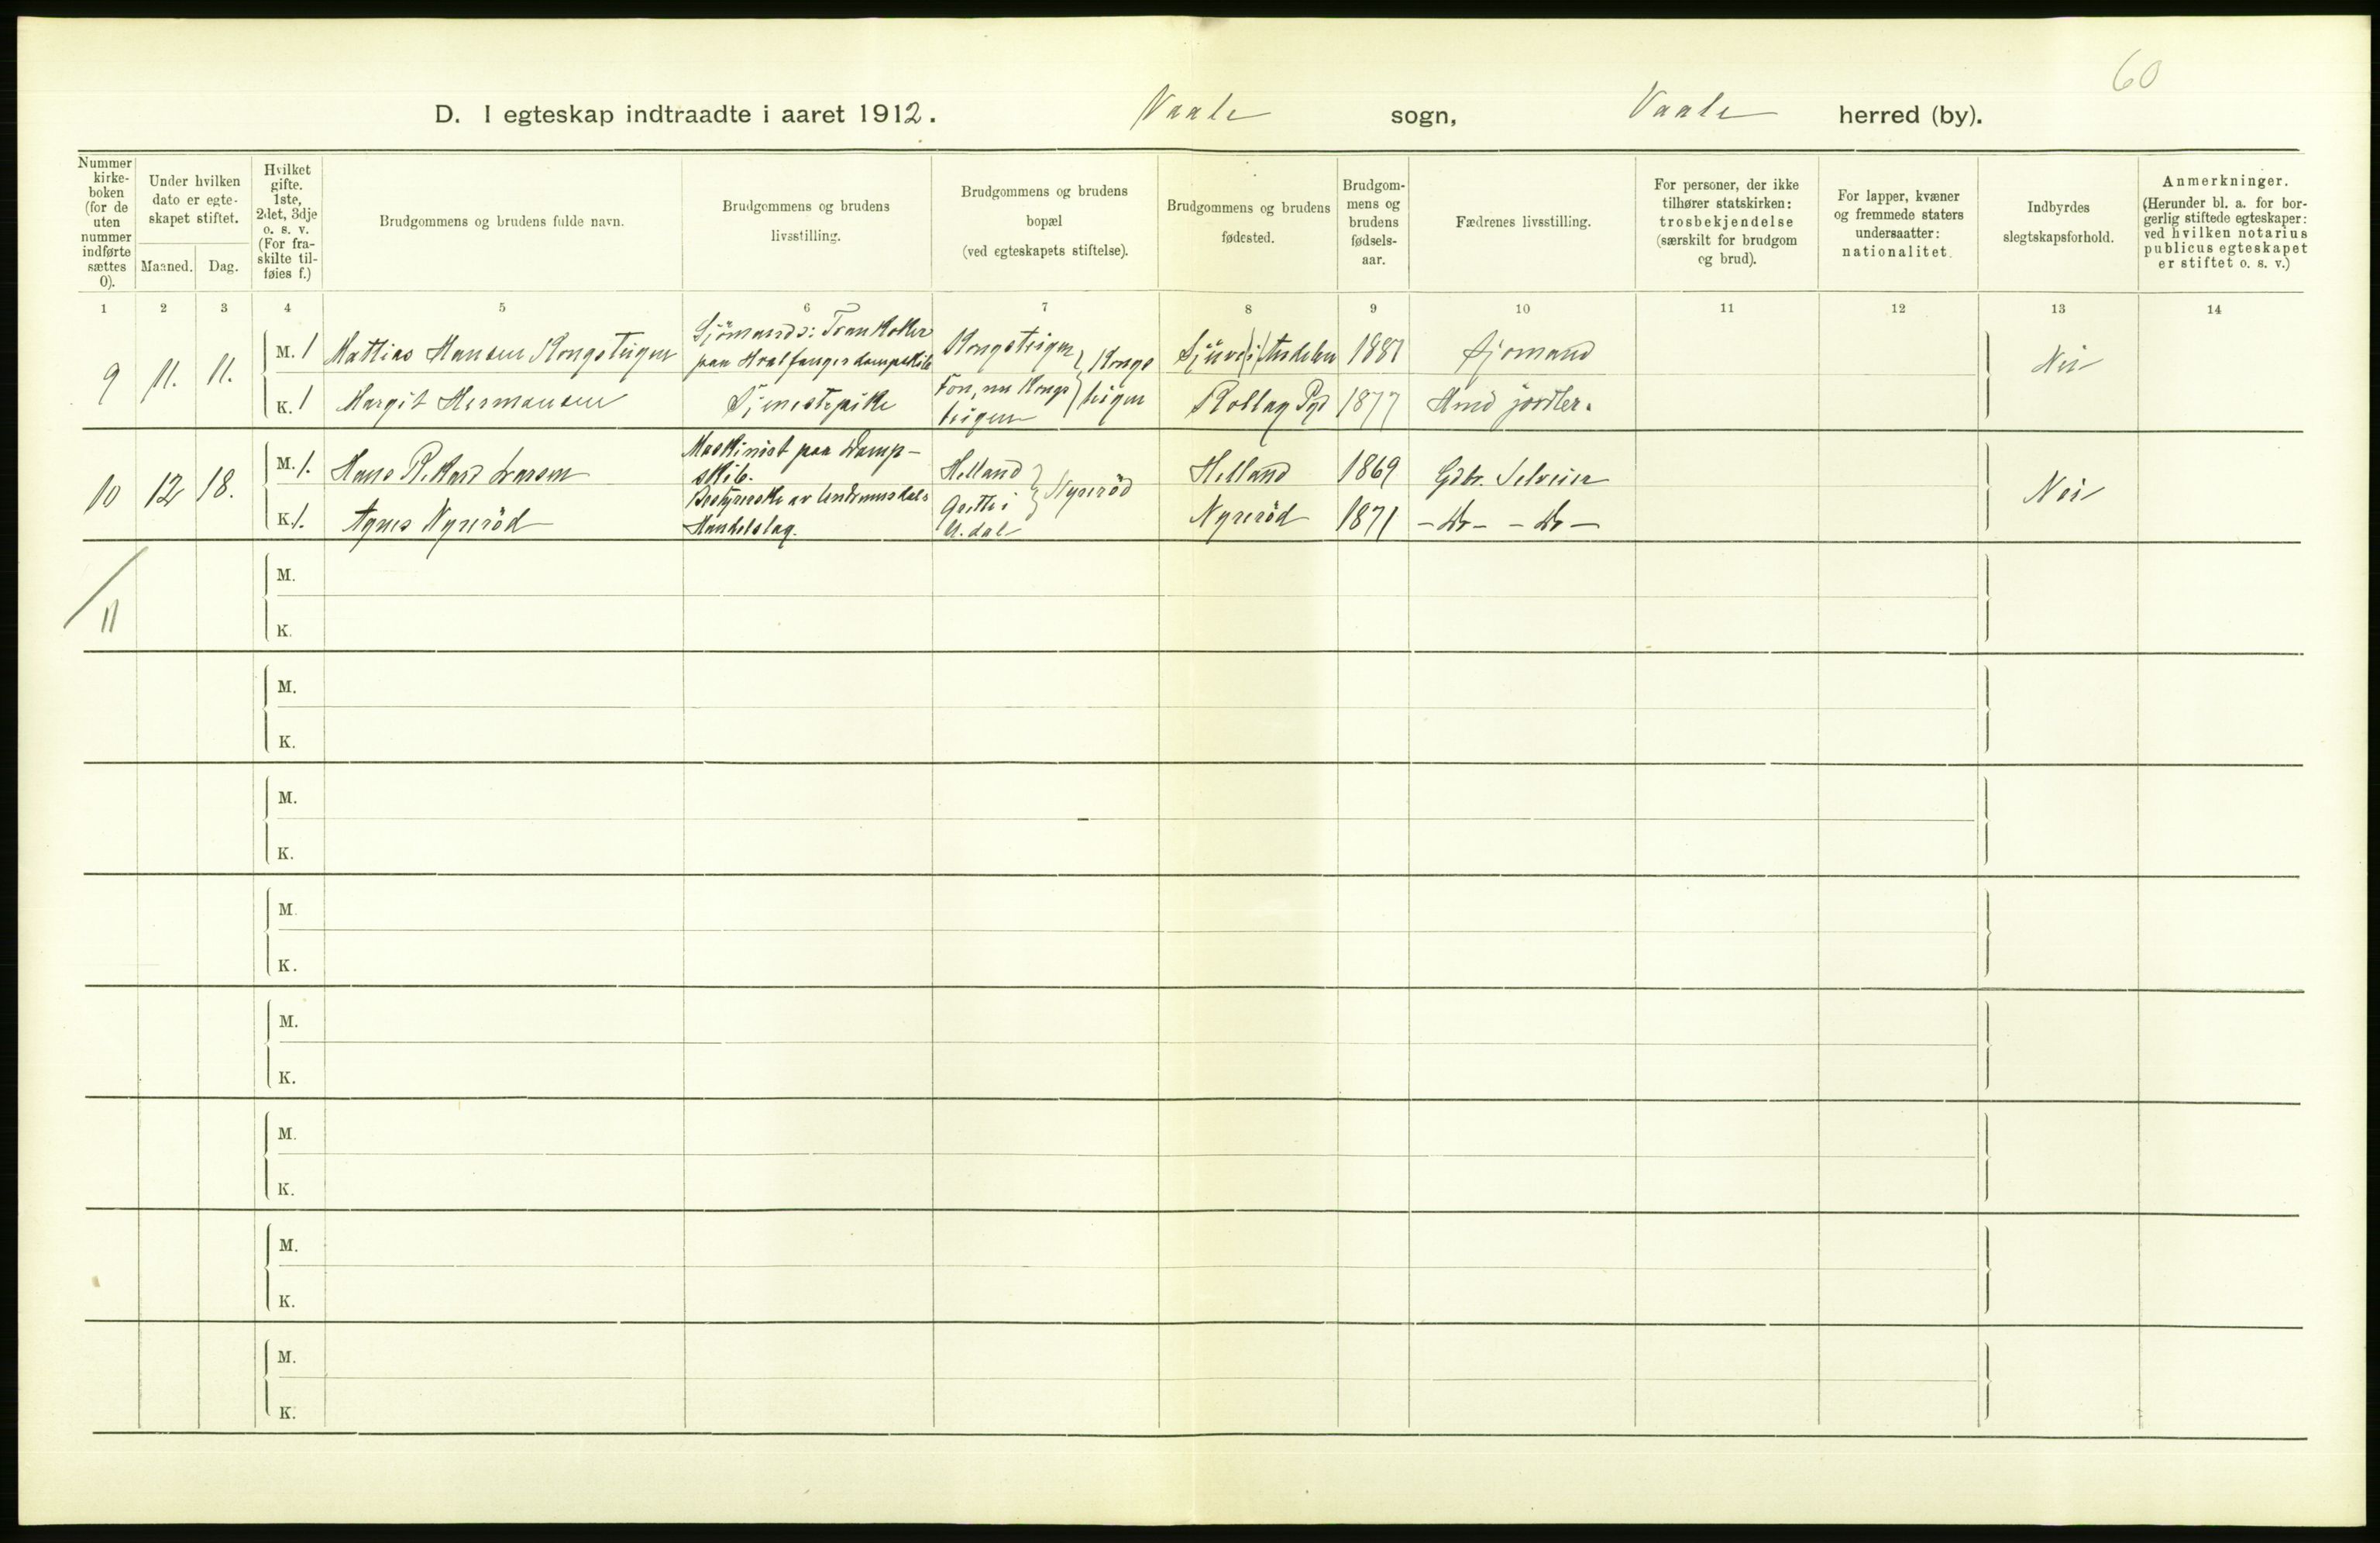 60
D. I egteskap indtraadte i aaret 1912. Vaale sogn, Vaale herred (by).
Nummer kirke-boken (for de uten nummer indførte sættes 0).
Under hvilken dato er egte-skapet stiftet.
Maaned. Dag.
Hvilket gifte. 1ste, 2det, 3dje o. s. v. (For fra-skilte til-føies f.)
Brudgommens og brudens fulde navn.
Brudgommens og brudens livsstilling.
Brudgommens og brudens bopæl (ved egteskapets stiftelse).
Brudgommens og brudens fødested.
Brudgom-mens og brudens fødsels-aar.
Fædrenes livsstilling.
For personer, der ikke tilhører statskirken: trosbekjendelse (særskilt for brudgom og brud).
For lapper, kvæner og fremmede staters undersaatter: nationalitet.
Indbyrdes slegtskapsforhold.
Anmerkninger. (Herunder bl. a. for bor-gerlig stiftede egteskaper: ved hvilken notarius publicus egteskapet er stiftet o. s. v.)
1 2 3 4 5 6 7 8 9 10 11 12 13 14
9 11. 11.
M. 1 Mattias Hansen Kongsteigen Sjömand ɔ: Trankoker paa Hvalfangerdampskib Kongsteigen Kongsteigen 1881 Sjömand Nei
K. 1 Margit Hermansen Tjenestepike Fon, nu Kongsteigen Rollag Pgd 1877
10 12 18.
M. 1. Hans Rikard Larsen Maskinist paa Dampskib. Helland Nyreröd Helland 1869 Gdbr. Selveier Nei
K. 1. Agnes Nyreröd Bestyrerske av Undrumsdals Handelslag. U.dal Nyreröd 1871 - Do - - Do -
11
M.
K.
M.
K.
M.
K.
M.
K.
M.
K.
M.
K.
M.
K.
M.
K.